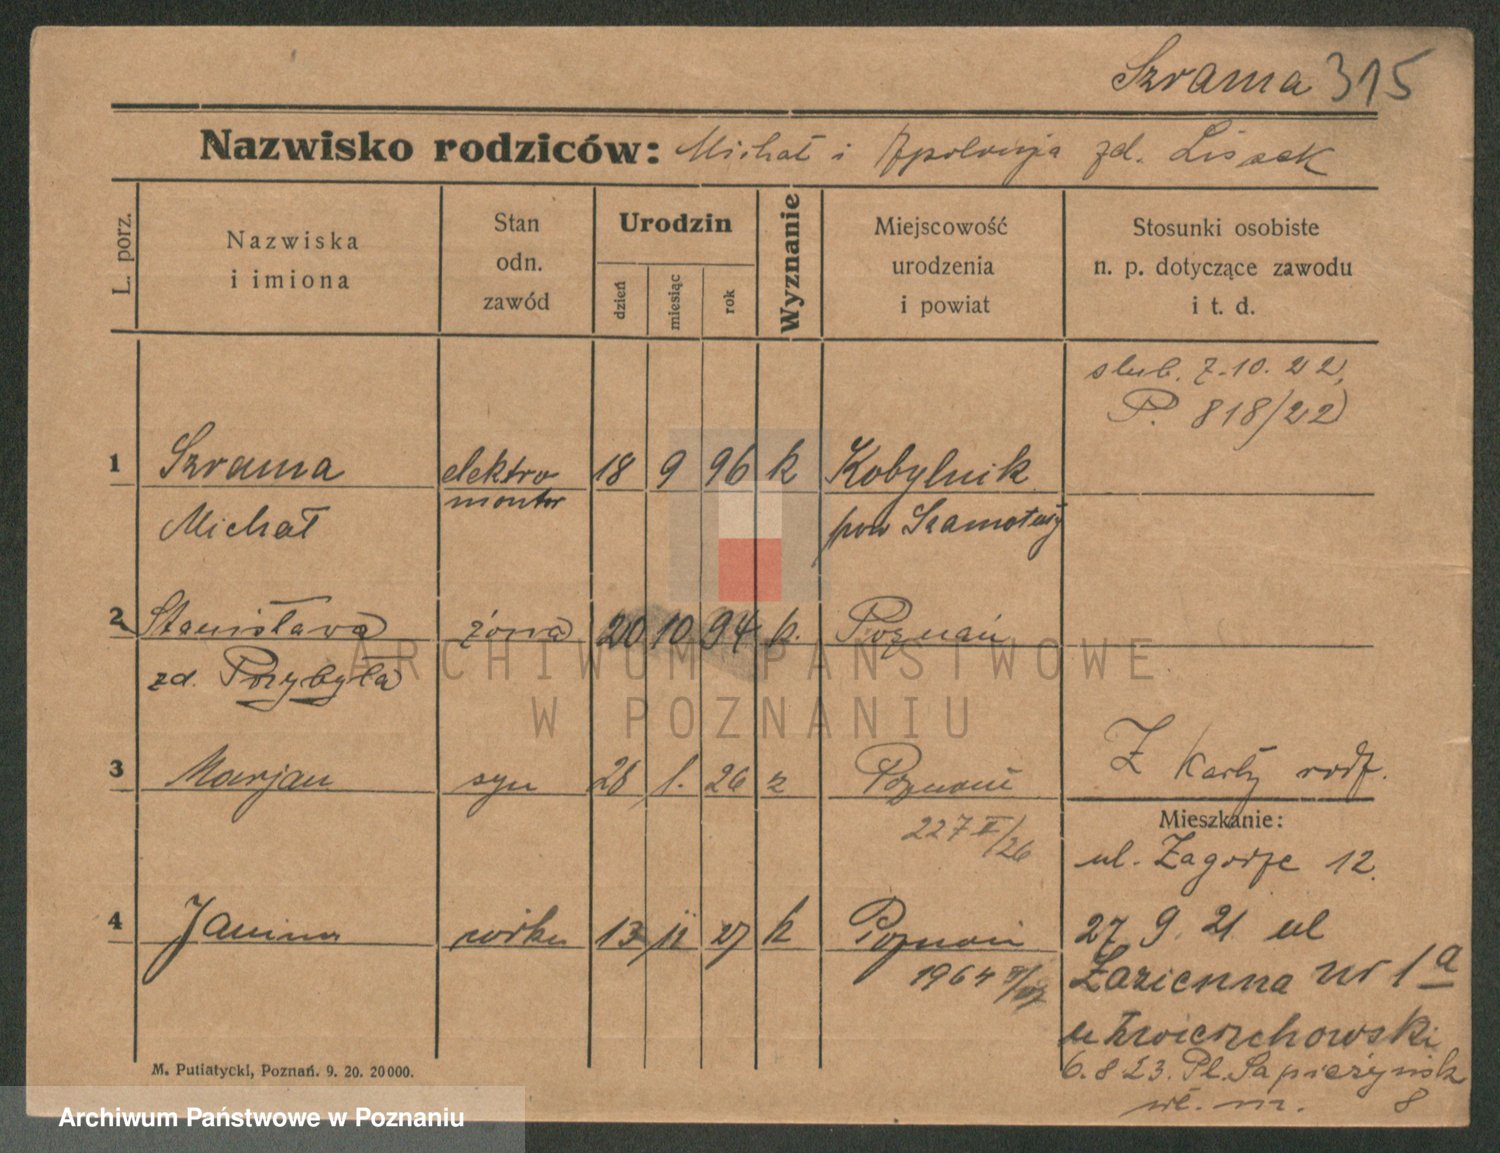 Szrama 315
Nazwisko rodziców: Michał i Apolonja zd. Lisiak
L. porz.
Nazwiska
i imiona
Stan
odn.
zawód
Urodzin
dzień
miesiąc
rok
Wyznanie
Miejscowość
urodzenia
i powiat
Stosunki osobiste
n. p. dotyczące zawodu
i t. d.
slub. 7.10.22,
P. 818/22
1 Szrama elektro 18 9 96 k Kobylnik
Michał montor pow Szamotuły
2 Stanisława żona 20 10 94 k. Poznań
zd. Przybyła
Z Karty rodz.
3 Marjan syn 28 1. 26 k Poznań
227 II/26
Mieszkanie:
ul. Zagórze 12.
4 Janina córka 13 11 27 k Poznań
1964
27 9. 21 ul
Łazienna nr 1a
u Zwierzchowski
6.8.23. Pl. Sapieżyńsk
8
M. Putiatycki, Poznań. 9. 20. 20000.
ARCHIWUM PAŃSTWOWE
W POZNANIU
Archiwum Państwowe w Poznaniu